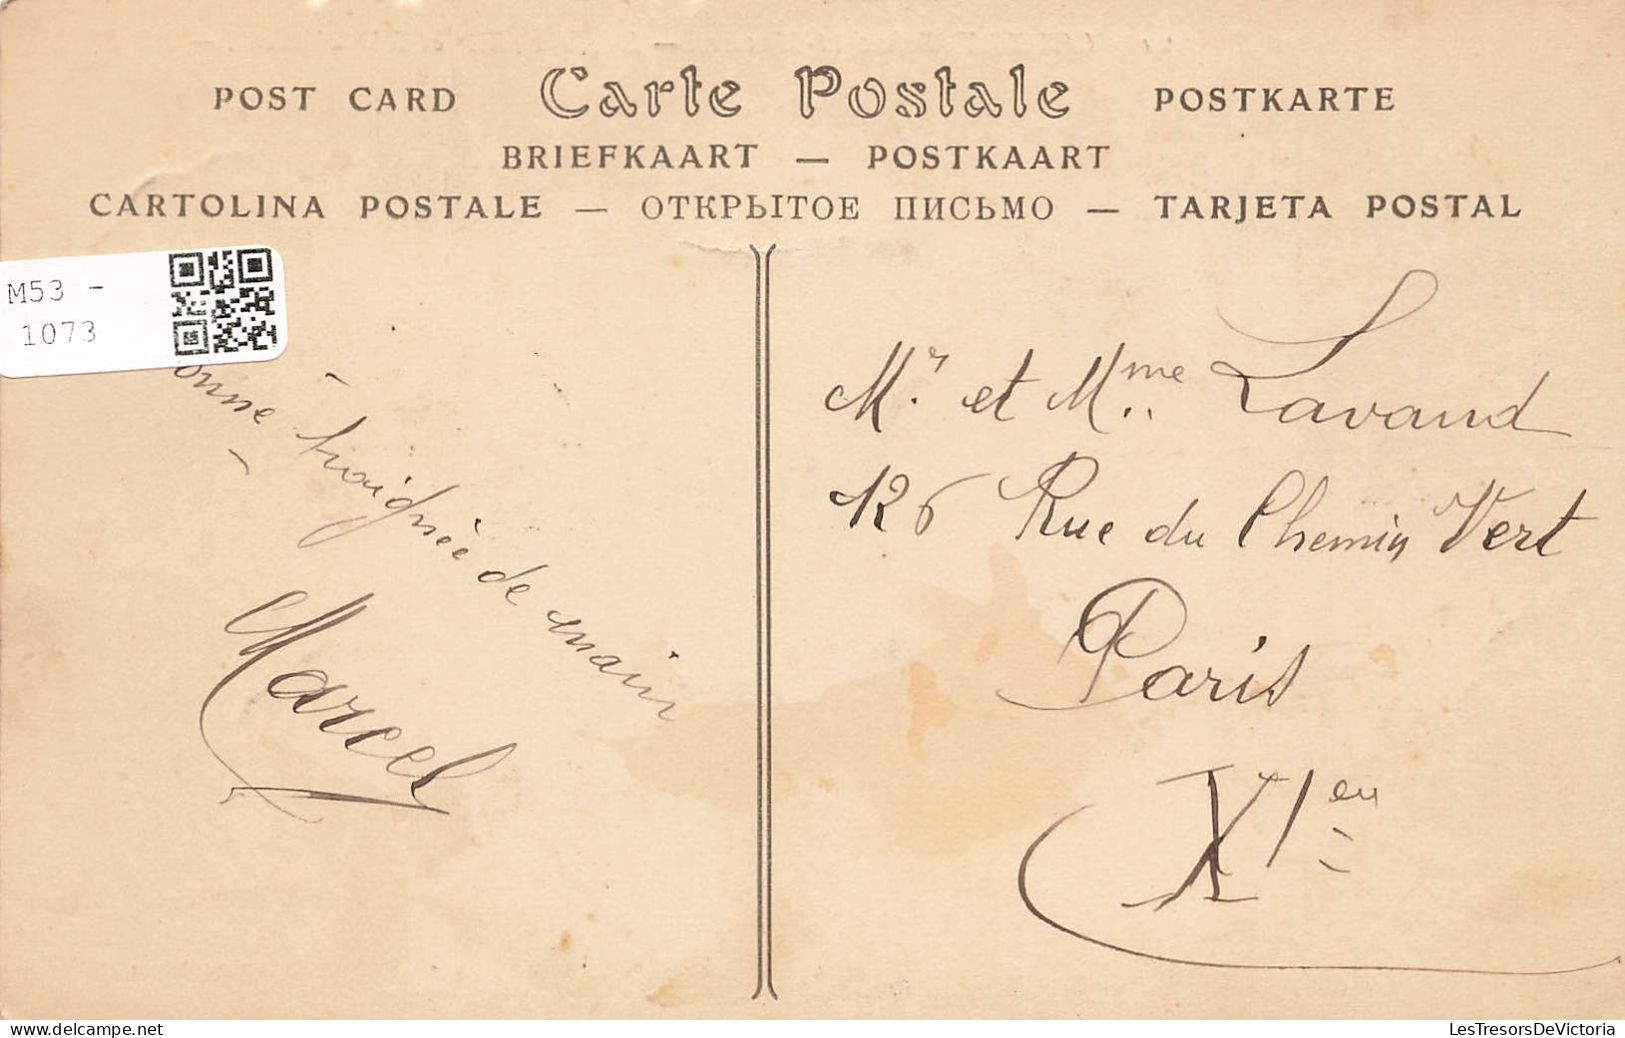 POST CARD Carte Postale POSTKARTE
BRIEFKAART — POSTKAART
CARTOLINA POSTALE — ОТКРЫТОЕ ПИСЬМО — TARJETA POSTAL
M53 -
1073
onne
poignée de main
Marcel
Mr. et Mme Lavaud
126 Rue du Chemin Vert
Paris
XIen
delcampe.net
LesTresorsDeVictoria